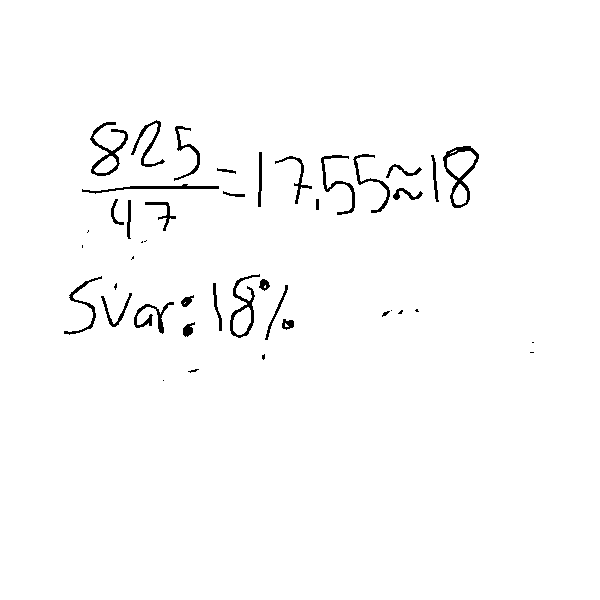 825/47 = 17.55 ≈ 18
Svar: 18%
...